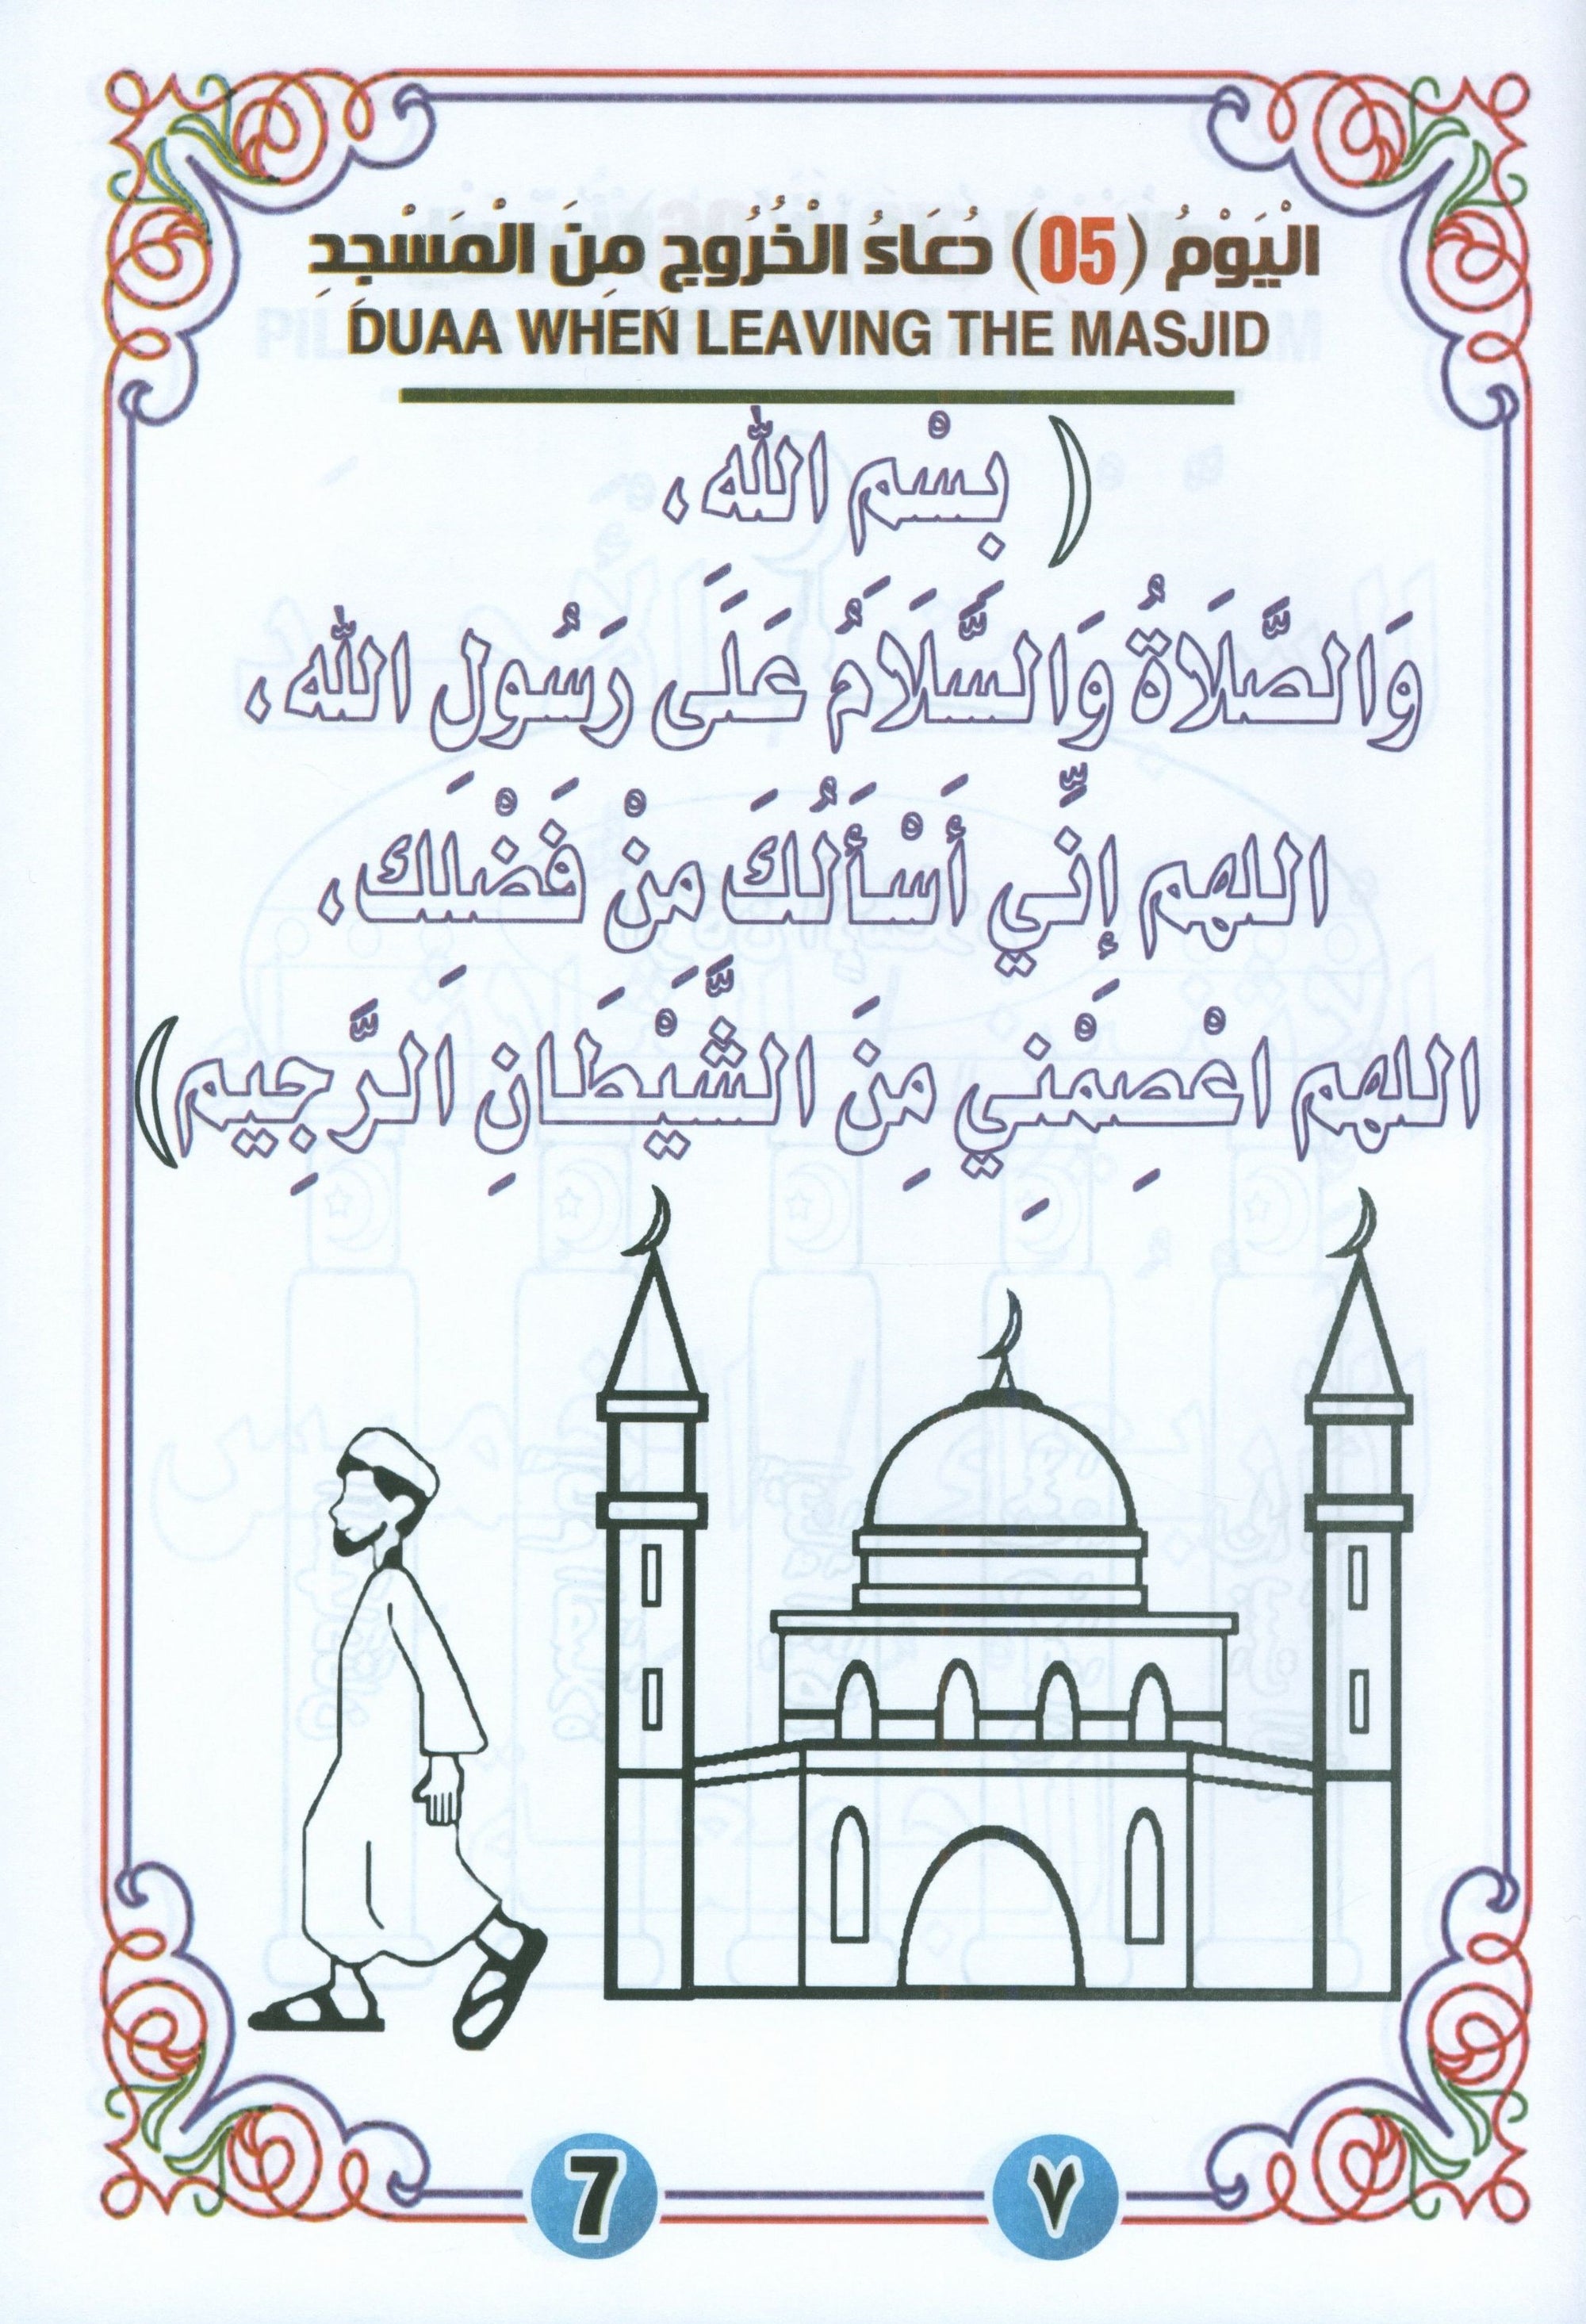 الْيَوْمُ (05) دُعَاءُ الْخُرُوجِ مِنَ الْمَسْجِدِ
DUAA WHEN LEAVING THE MASJID
( بِسْمِ اللَّه،
وَالصَّلَاةُ وَالسَّلَامُ عَلَى رَسُول اللَّه،
اللهم إِنِّي أَسْأَلُكَ مِنْ فَضْلِك،
اللهم اعْصِمْنِي مِنَ الشَّيْطَانِ الرَّجِيم)
7 ٧